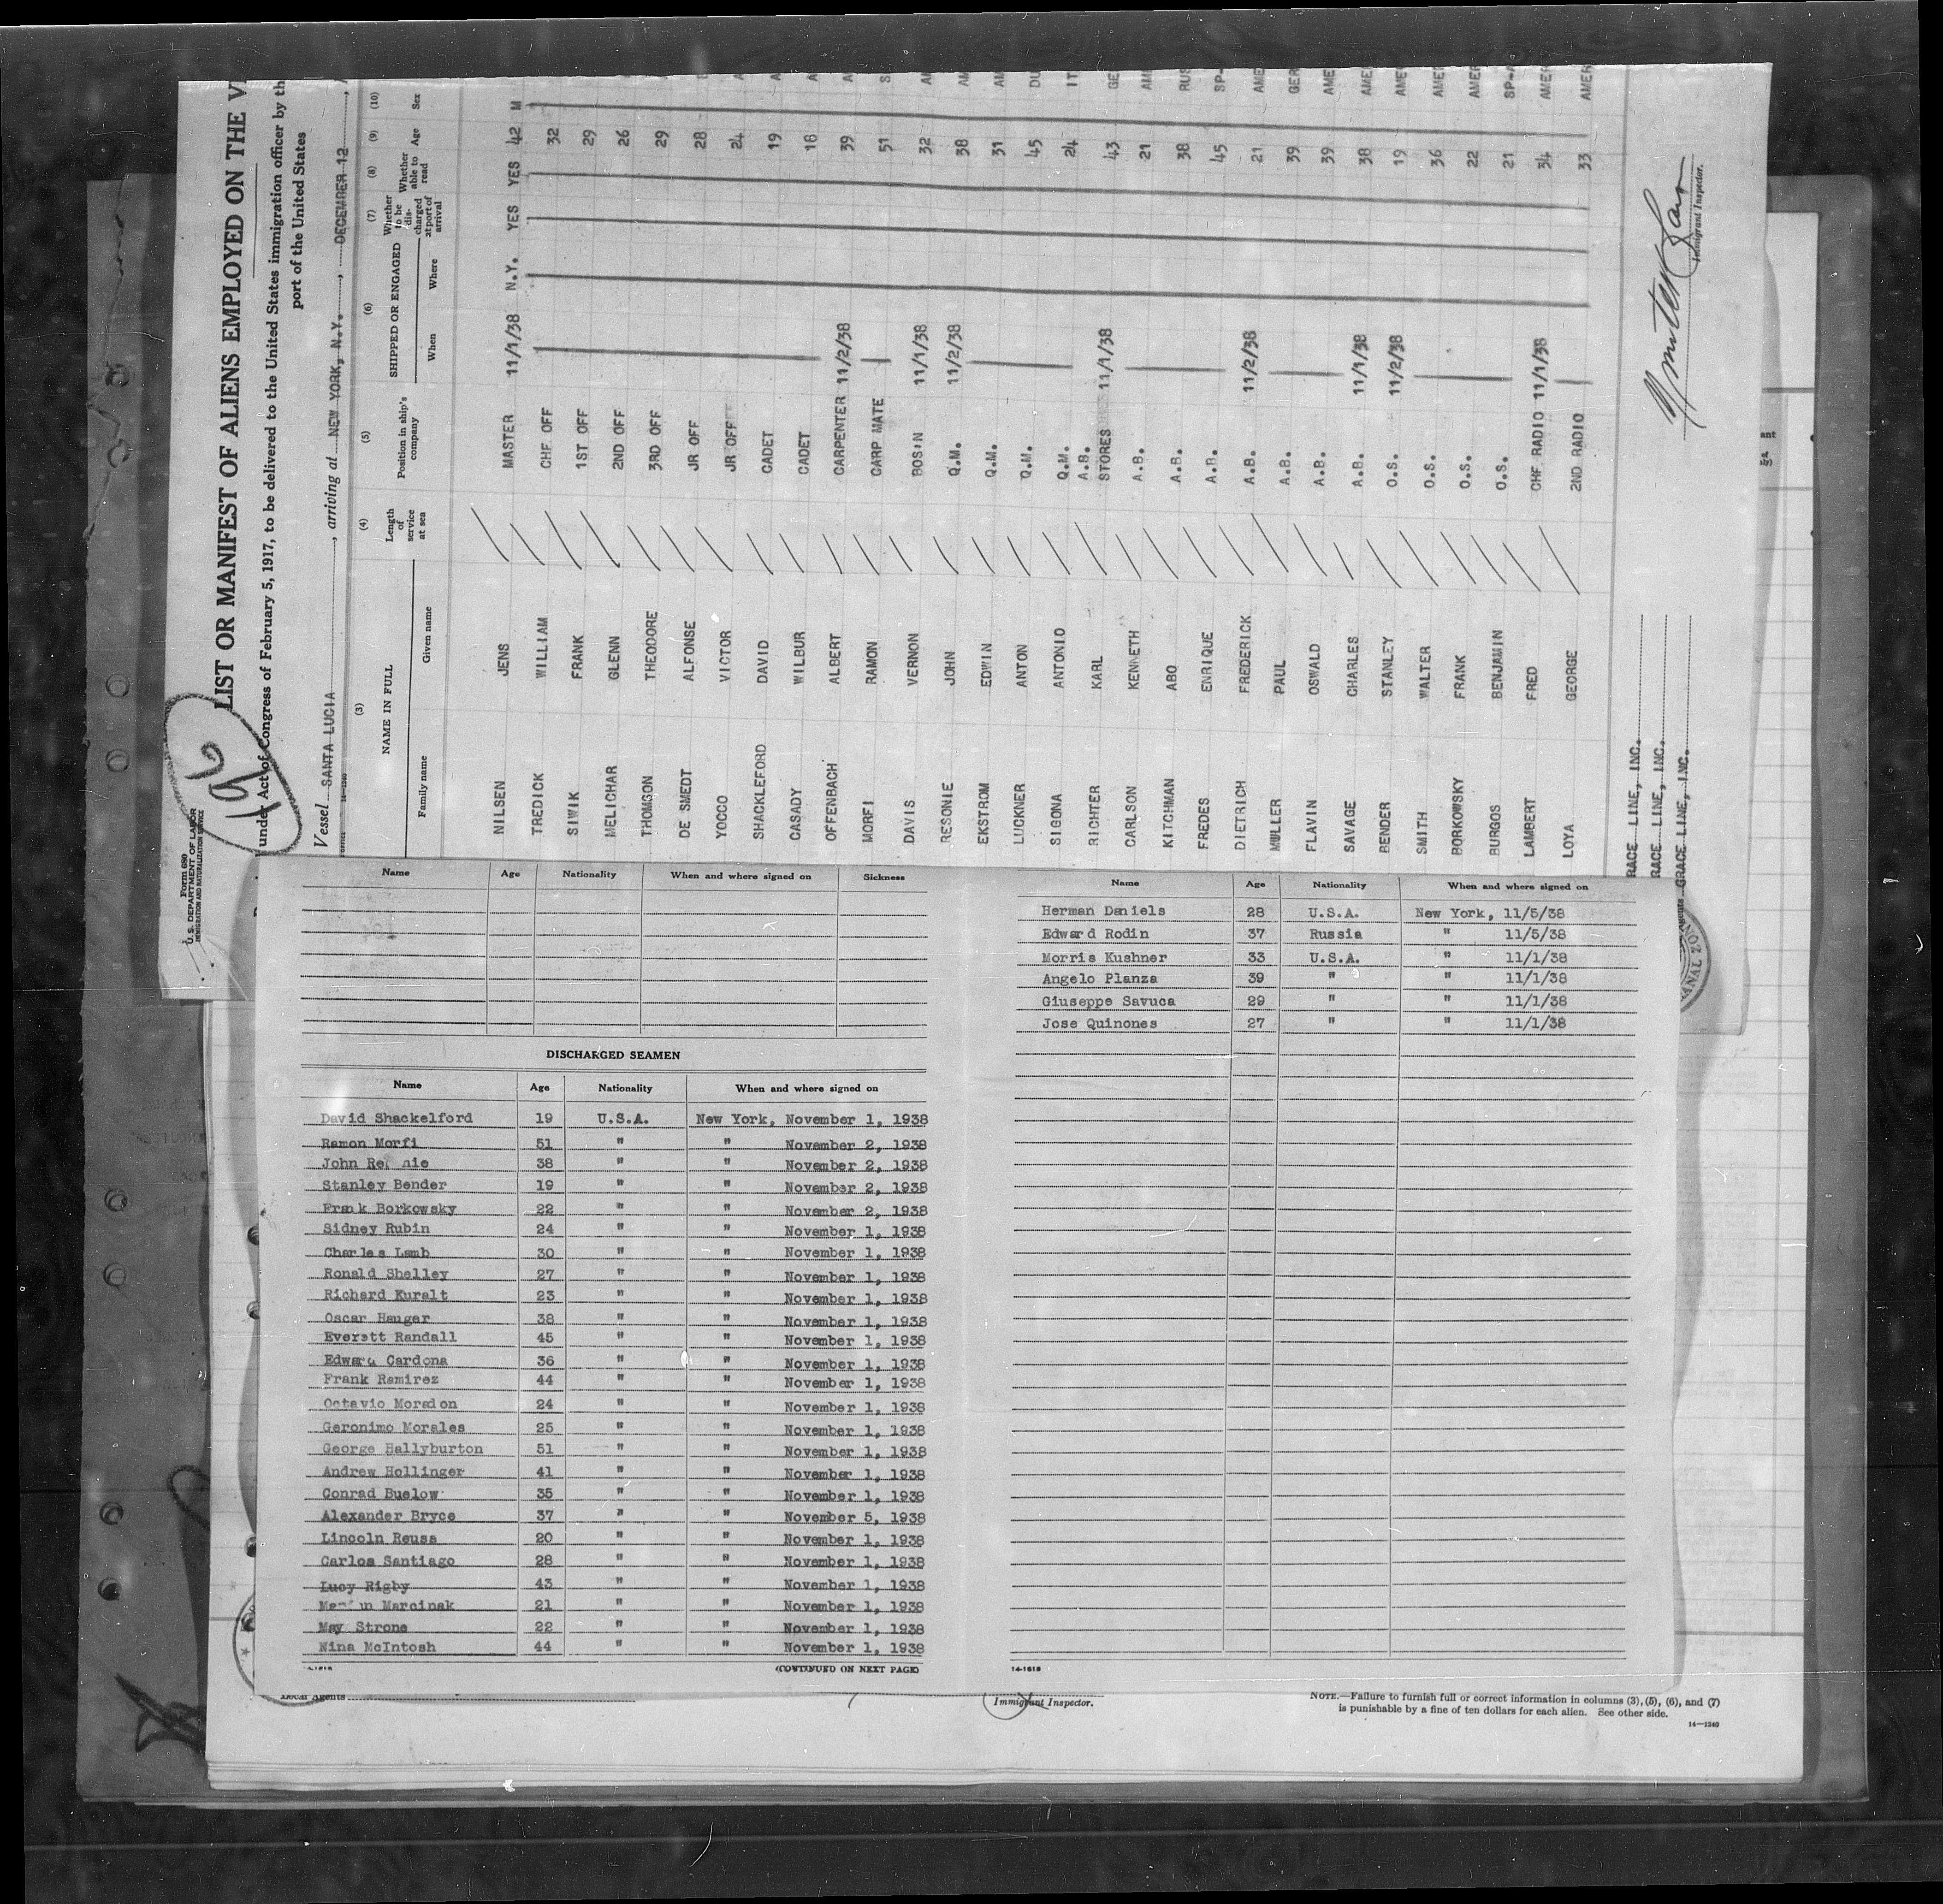 Form 680
U.S. DEPARTMENT OF LABOR
IMMIGRATION AND NATURALIZATION SERVICE
96
LIST OR MANIFEST OF ALIENS EMPLOYED ON THE V
under Act of Congress of February 5, 1917, to be delivered to the United States immigration officer by th
port of the United States
Vessel SANTA LUCIA, arriving at NEW YORK, N.Y., DECEMBER 12,
(3) (4) (5) (6) (7) (8) (9) (10)
NAME IN FULL Length of service at sea Position in ship's company SHIPPED OR ENGAGED Whether to be discharged at port of arrival Whether able to read Age Sex
Family name Given name When Where
NILSEN JENS MASTER 11/1/38 N.Y. YES YES 42 M
TREDICK WILLIAM CHF OFF 32
SIWIK FRANK 1ST OFF 29
MELICHAR GLENN 2ND OFF 26
THOMSON THEODORE 3RD OFF 29
DE SMEDT ALFONSE JR OFF 28
YOCCO VICTOR JR OFF 24
SHACKLEFORD DAVID CADET 19
CASADY WILBUR CADET 18
OFFENBACH ALBERT CARPENTER 11/2/38 39
MORFI RAMON CARP MATE 51
DAVIS VERNON BOSIN 11/1/38 32
RESONIE JOHN Q.M. 11/2/38 38
EKSTROM EDWIN Q.M. 31
LUCKNER ANTON Q.M. 45
SIGONA ANTONIO Q.M. 24
RICHTER KARL A.B. STORES 11/1/38 43
CARLSON KENNETH A.B. 21
KITCHMAN ABO A.B. 38
FREDES ENRIQUE A.B. 45
DIETRICH FREDERICK A.B. 11/2/38 21
MULLER PAUL A.B. 39
FLAVIN OSWALD A.B. 39
SAVAGE CHARLES A.B. 11/1/38 38
BENDER STANLEY O.S. 11/2/38 19
SMITH WALTER O.S. 36
BORKOWSKY FRANK O.S. 22
BURGOS BENJAMIN O.S. 21
LAMBERT FRED CHF RADIO 11/1/38 34
LOYA GEORGE 2ND RADIO 33
RACE LINE, INC.
RACE LINE, INC.
GRACE LINE, INC.
Immigrant Inspector.
Name Age Nationality When and where signed on Sickness
DISCHARGED SEAMEN
Name Age Nationality When and where signed on
David Shackelford 19 U.S.A. New York, November 1, 1938
Ramon Morfi 51 " " November 2, 1938
John Re nie 38 " " November 2, 1938
Stanley Bender 19 " " November 2, 1938
Frank Borkowsky 22 " " November 2, 1938
Sidney Rubin 24 " " November 1, 1938
Charles Lamb 30 " " November 1, 1938
Ronald Shelley 27 " " November 1, 1938
Richard Kuralt 23 " " November 1, 1938
Oscar Hauger 38 " " November 1, 1938
Everett Randall 45 " " November 1, 1938
Edward Cardona 36 " " November 1, 1938
Frank Ramirez 44 " " November 1, 1938
Octavio Moradon 24 " " November 1, 1938
Geronimo Morales 25 " " November 1, 1938
George Hallyburton 51 " " November 1, 1938
Andrew Hollinger 41 " " November 1, 1938
Conrad Buelow 35 " " November 1, 1938
Alexander Bryce 37 " " November 5, 1938
Lincoln Reuss 20 " " November 1, 1938
Carlos Santiago 28 " " November 1, 1938
Lucy Rigby 43 " " November 1, 1938
Marcinak 21 " " November 1, 1938
May Strone 22 " " November 1, 1938
Nina McIntosh 44 " " November 1, 1938
(CONTINUED ON NEXT PAGE)
Name Age Nationality When and where signed on
Herman Daniels 28 U.S.A. New York, 11/5/38
Edward Rodin 37 Russia " 11/5/38
Morris Kushner 33 U.S.A. " 11/1/38
Angelo Planza 39 " " 11/1/38
Giuseppe Savuca 29 " " 11/1/38
Jose Quinones 27 " " 11/1/38
14-1618
Local Agents
Immigrant Inspector.
NOTE.—Failure to furnish full or correct information in columns (3), (5), (6), and (7)
is punishable by a fine of ten dollars for each alien. See other side.
14—1240